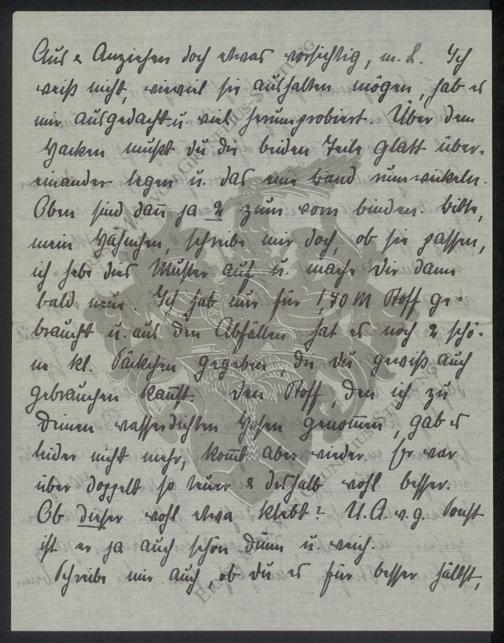 Aus & Anziehen doch etwas vorsichtig, m. L. Ich
weiß nicht, wieviel sie aushalten mögen, hab es
mir ausgedacht u. viel herumprobiert. Über dem
Hacken mußt du die beiden Teile glatt über-
einander legen u. das eine Band rumwickeln.
Oben sind dann ja 2 zum vorn binden. Bitte,
mein Häschen, schreibe mir doch, ob sie passen,
ich hebe das Muster auf u. mache Dir dann
bald neue. Ich hab nur für 1,70 M Stoff ge-
braucht u. aus den Abfällen hat es noch 2 schö-
ne kl. Säckchen gegeben, die du gewiß auch
gebrauchen kannst. Den Stoff den ich zu
Deinen wasserdichten Hosen genommen, gab es
leider nicht mehr, kommt aber wieder. Er war
über doppelt so teuer & deshalb wohl besser.
Ob dieser wohl etwa klebt? U.A.w.g. Sonst
ist er ja auch schön dünn u. weich.
Schreibe mir auch, ob du es für besser hältst,